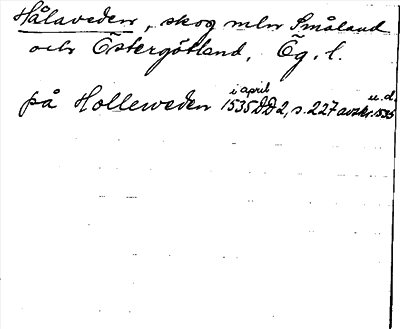 Hålaveden, skog mln Småland
och Östergötland, Ög. l.
på Holleweden i april 1535 DD 2, s. 227 avskr. u. d. 1535